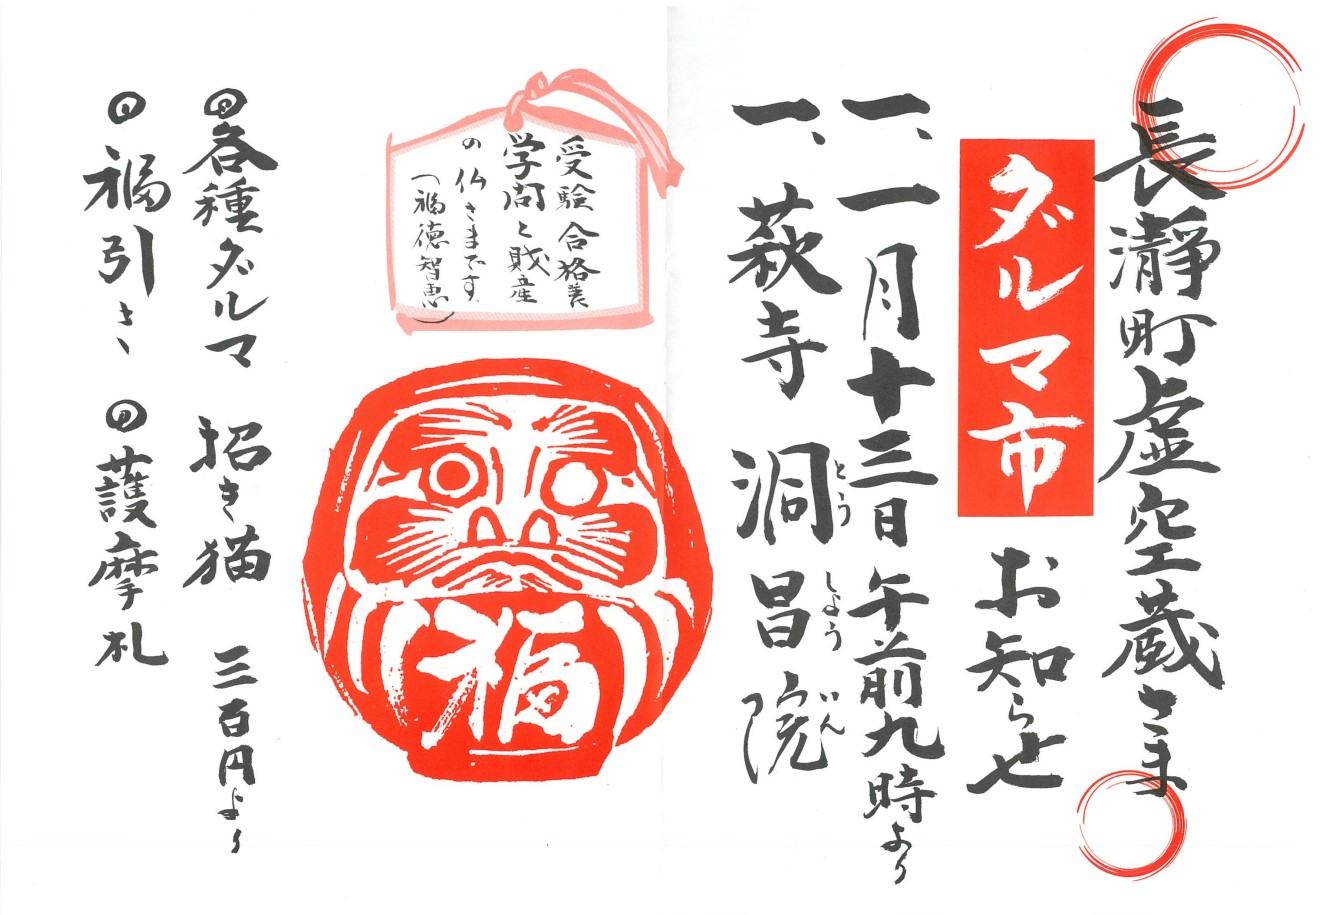 長瀞町虚空蔵さま
ダルマ市 お知らせ
一、一月十三日 午前九時より
一、萩寺 洞昌院
とう しょう いん
受験合格祈
学問と財産
の仏さまです。
(福徳智恵)
福
◎各種ダルマ 招き猫 三百円より
◎福引き ◎護摩札